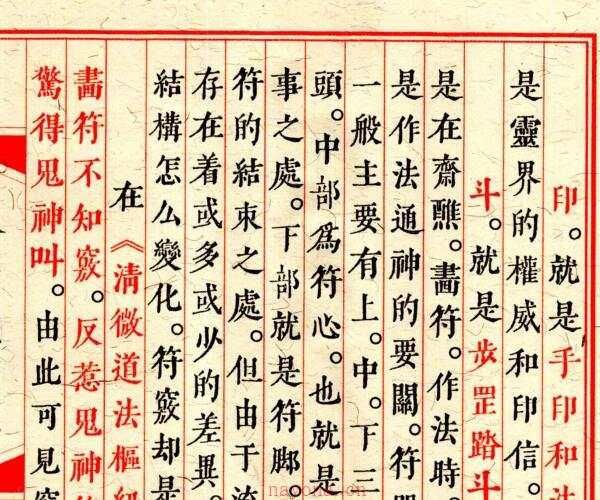 印。就是手印和法
是靈界的權威和印信。
斗。就是步罡踏斗
是在齋醮。畵符。作法時。
是作法通神的要關。符
一般主要有上。中。下三
頭。中部爲符心。也就是
事之處。下部就是符脚。
符的結束之處。但由于流
存在着或多或少的差異。
結構怎么變化。符竅却是
在《清微道法樞紐
畵符不知竅。反惹鬼神
驚得鬼神叫。由此可見竅